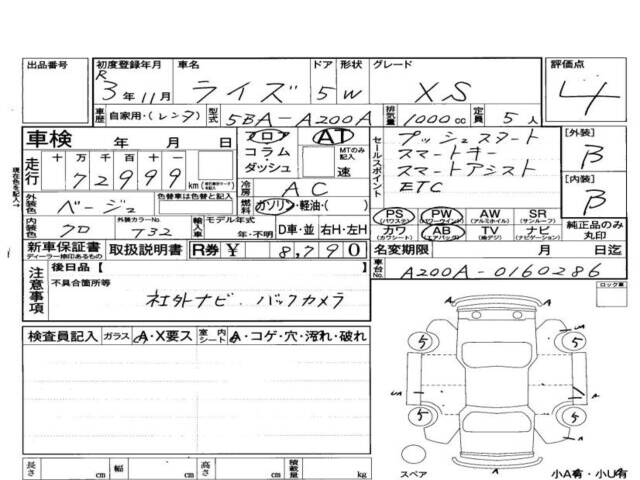 出品番号 初度登録年月 車名 ドア 形状 グレード 評価点
R 3年11月 ライズ 5 W XS 4
車歴 自家用・(レンタ) 型式 5BA-A200A 排気量 1000cc 定員 5人
車検 年 月 日 フロア AT セールスポイント プッシュスタート [外装]
走行 十 万 千 百 十 一 コラム・ MTのみ記入 スマートキー B
72999km ダッシュ 速 スマートアシスト [内装]
現在色を記入→ 冷房 AC ETC B
外装色 ベージュ 色替車は色替と記入 燃料 ガソリン・軽油・( ) PS (パワステ) PW (パワーウインド) AW (アルミホイル) SR (サンルーフ) 純正品のみ丸印
内装色 クロ 外装カラーNo. T32 輸入車 モデル年式 年・不明 D車・並 右H・左H カワ (カワシート) AB (エアバッグ) TV (純デジ) ナビ (ナビゲーション)
新車保証書 ディーラー捺印あるもの 取扱説明書 R券 ¥ 8,790 名変期限 月 日迄
注意事項 後日品【 】 車台No. A200A-0160286
不具合箇所等 ロック車
社外ナビ．バックカメラ
検査員記入 ガラス A・X要ス 室内シート A・コゲ・穴・汚れ・破れ
5 5
A
5 5
長さ cm 幅 cm 高さ cm 積載量 kg
スペア 小A有・小U有